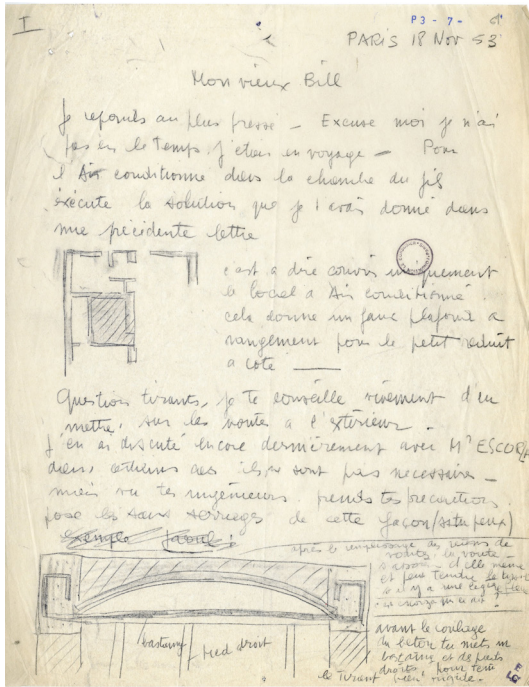 I
P3 - 7 -
PARIS 18 Nov 53
Mon vieux Bill
Je reponds au plus pressé — Excuse moi je n'ai
pas eu le temps, j'étais en voyage — Pour
l'Air conditionné dans la chambre du fils
éxécute la solution que je t'avais donné dans
ma précédente lettre
c'est a dire couvrir uniquement
le local a Air conditionné
cela donne un faux plafond a
rangement pour le petit réduit
a coté
Question tirants, je te conseille vivement d'en
mettre, sur les voutes a l'extérieur.
J'en ai discuté encore dernièrement avec Mr ESCOR
dans certains cas ils ne sont pas necessaires —
mais vu tes ingénieurs prends tes precautions
pose les sans serrages de cette façon (si tu peux)
Exemple Jaoul :
après le remplissage des reins de
voutes la voute
d'elle même
et peut tendre le tirant
si il y a une légère
bastaing
pied droit
avant le coulage
du béton tu mets un
bastaing et de pieds
droits pour tenir
le tirant bien rigide -